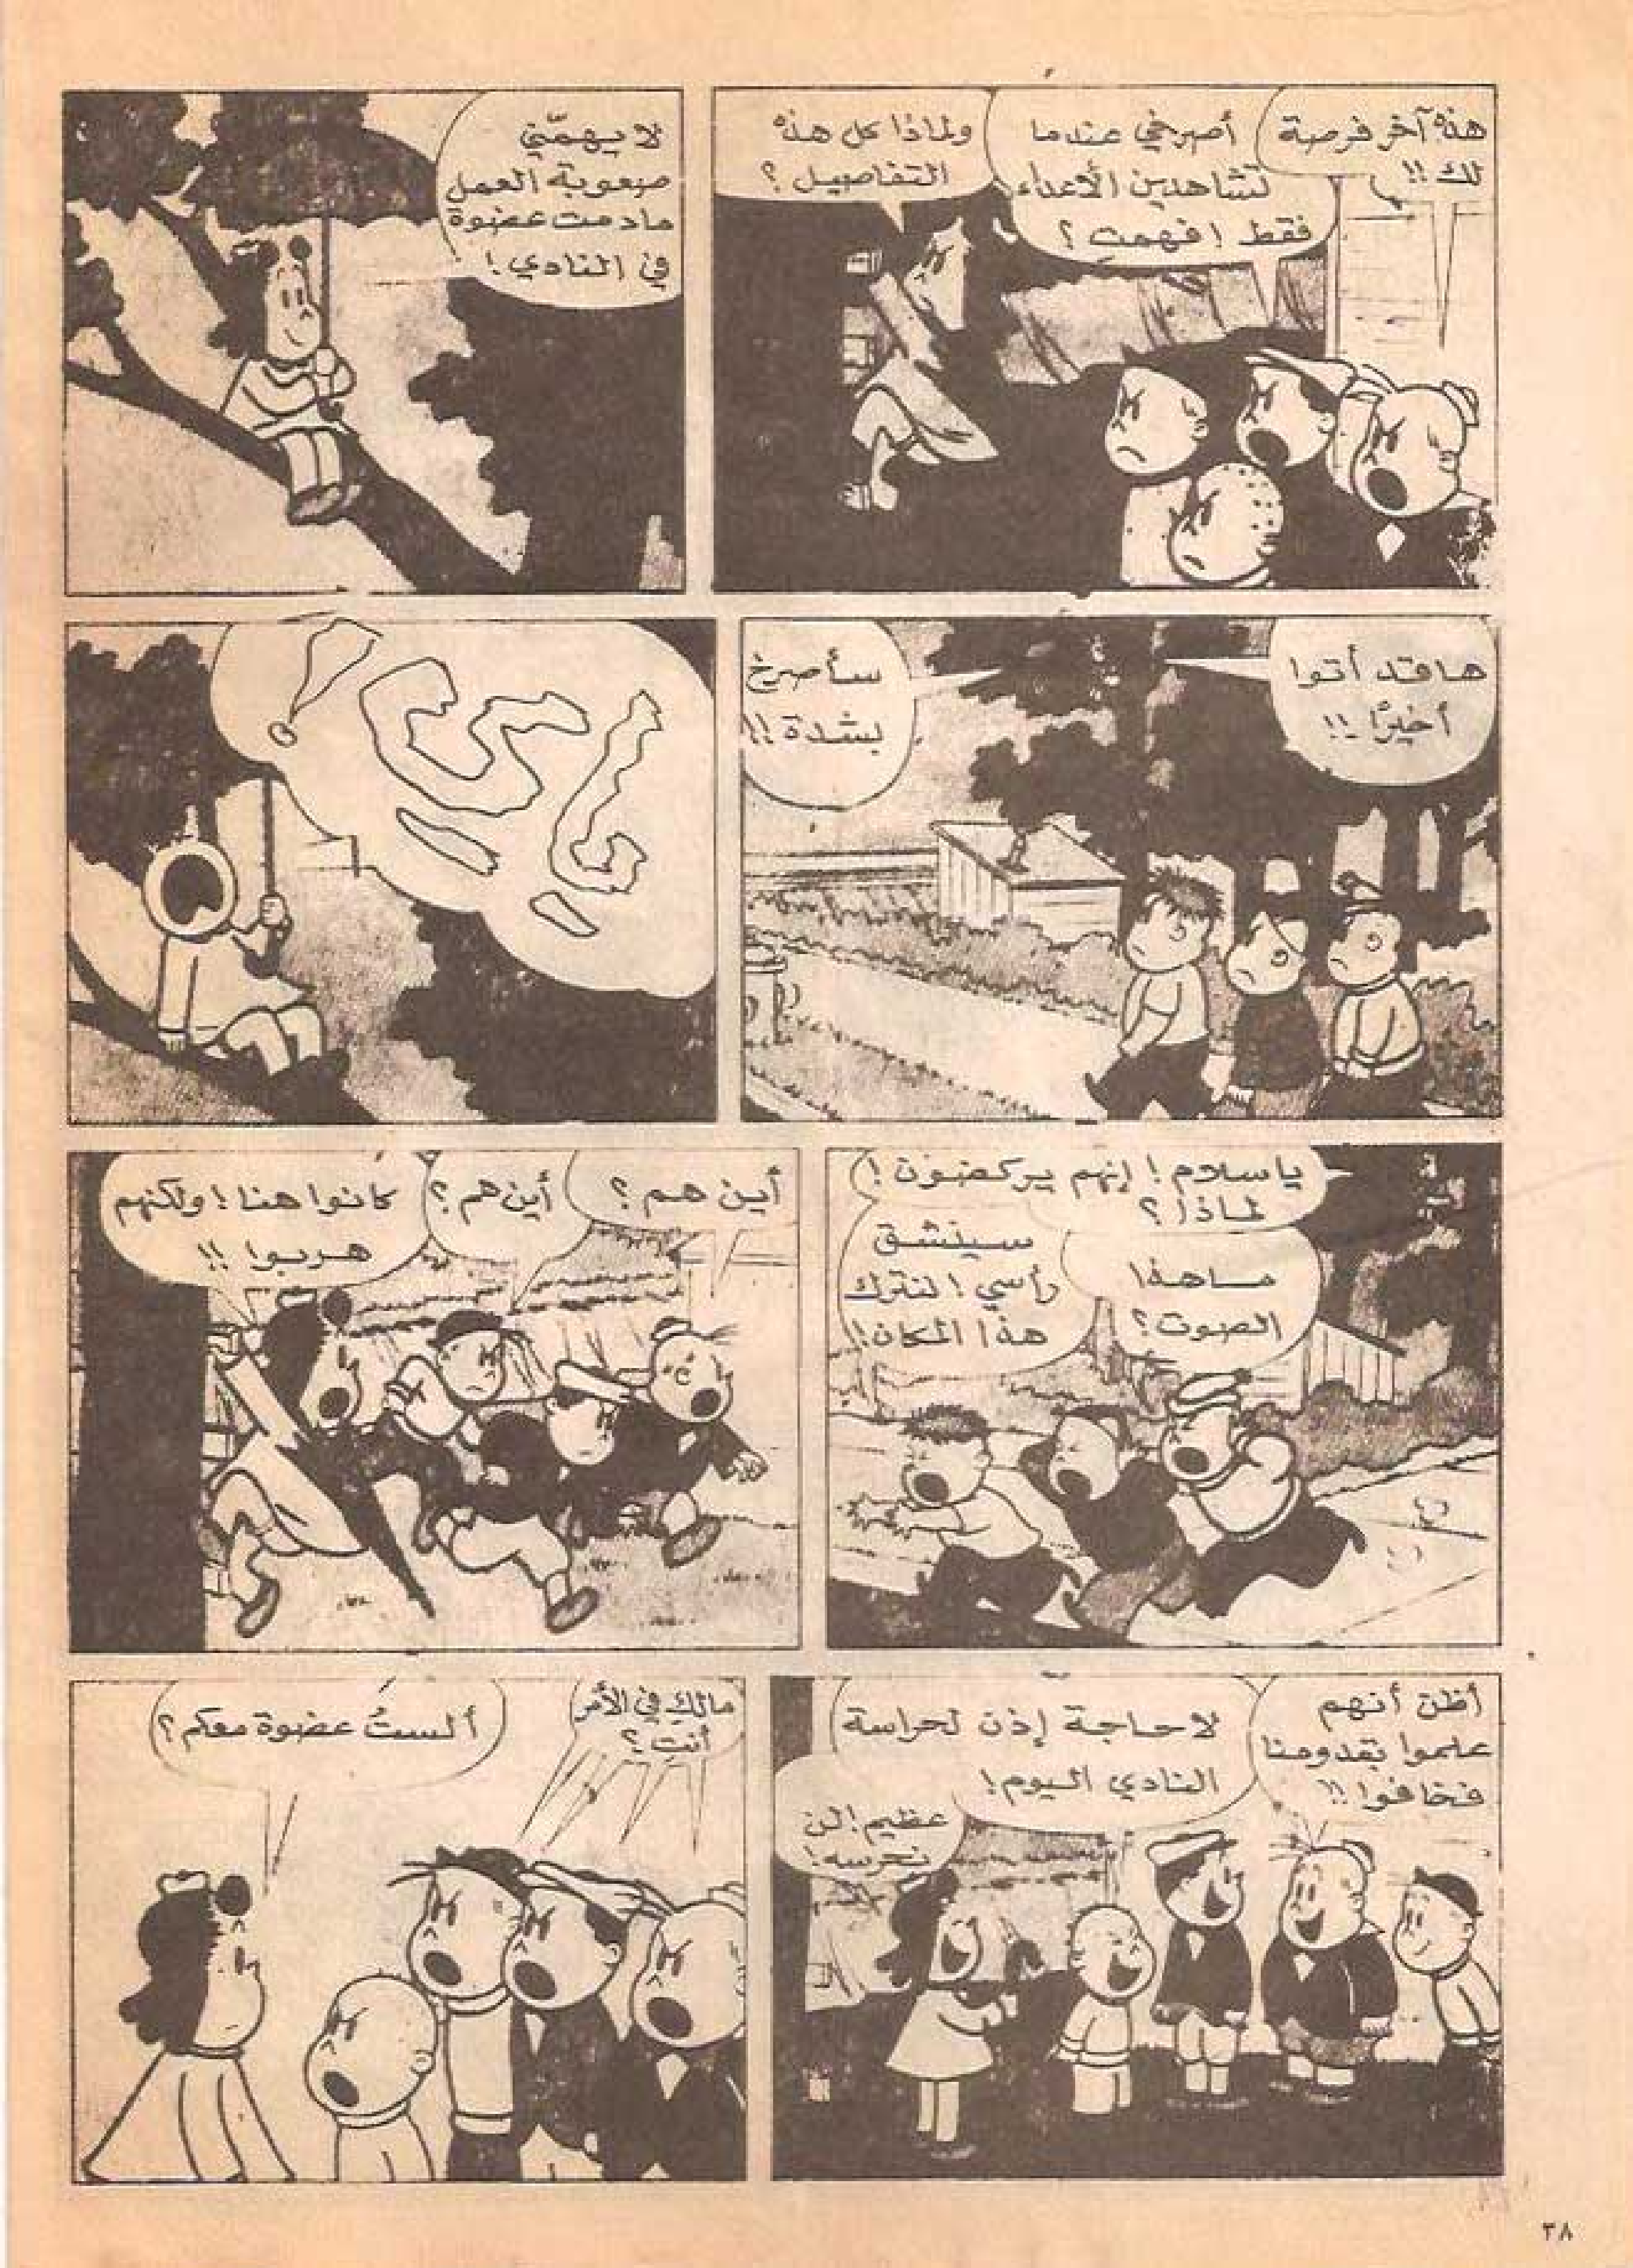 هذه آخر فرصة
لك !!
أصرخي عندما
تشاهدين الأعداء
فقط ! فهمت ؟
ولماذا كل هذه
التفاصيل ؟
لا يهمّني
صعوبة العمل
مادمت عضوة
في النادي !
ها قد أتوا
أخيرًا !!
سأصرخ
بشدة !!
ياسلام ! إنهم يركضون !
لماذا ؟
ما هذا
الصوت ؟
سينشق
رأسي ! لنترك
هذا المكان !
أين هم ؟
أين هم ؟
كانوا هنا ! ولكنهم
هربوا !!
أظن أنهم
علموا بقدومنا
فخافوا !!
لا حاجة إذن لحراسة
النادي اليوم !
عظيم ! لن
نحرسه !
مالكِ في الأمر
أنتِ ؟
ألستُ عضوة معكم ؟
٣٨